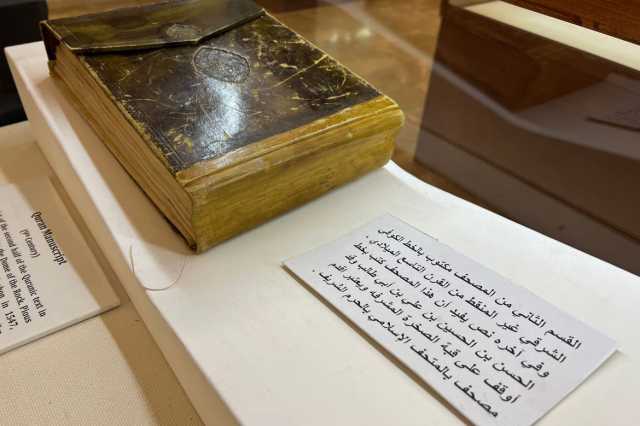 القسم الثاني من المصحف مكتوب بالخط الكوفي
الشرقي غير المنقط من القرن التاسع الميلادي
وفي آخره نص يفيد ان هذا المصحف كتب بخط
الحسن بن الحسين بن علي بن ابي طالب وقد
أوقف على قبة الصخرة المشرفة ويعتبر اقدم
مصحف بالمتحف الإسلامي بالحرم الشريف.
Quran Manuscript
(9th Century)
of the second half of the Quranic text in
the Dome of the Rock, Pious
In 1547,